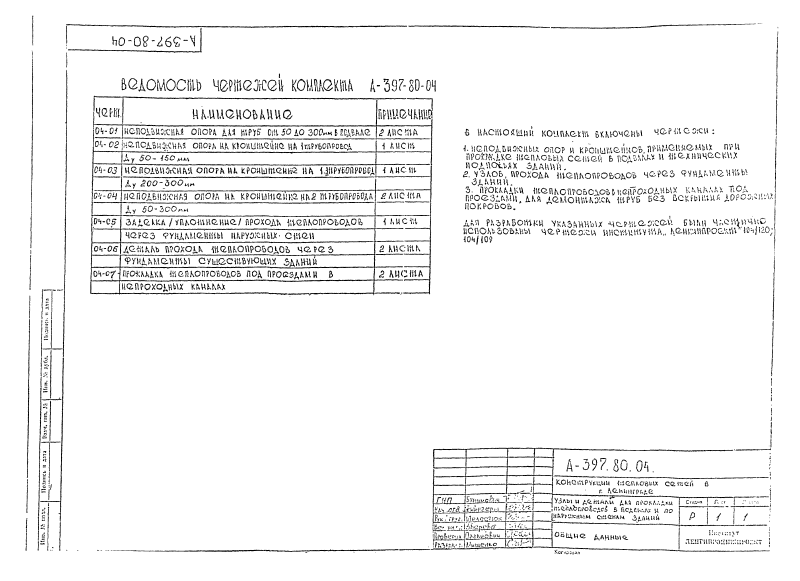 А-397-80-04
ВЕДОМОСТЬ ЧЕРТЕЖЕЙ КОМПЛЕКТА А-397-80-04
ЧЕРТ. НАИМЕНОВАНИЕ ПРИМЕЧАНИЕ
04-01 НЕПОДВИЖНАЯ ОПОРА ДЛЯ ТРУБ ОТ 50 ДО 300мм В ПОДВАЛЕ 2 ЛИСТА
04-02 НЕПОДВИЖНАЯ ОПОРА НА КРОНШТЕЙНЕ НА 1 ТРУБОПРОВОД 1 ЛИСТ
Ду 50-150 мм
04-03 НЕПОДВИЖНАЯ ОПОРА НА КРОНШТЕЙНЕ НА 1 ТРУБОПРОВОД 1 ЛИСТ
Ду 200-300мм
04-04 НЕПОДВИЖНАЯ ОПОРА НА КРОНШТЕЙНЕ НА 2 ТРУБОПРОВОДА 2 ЛИСТА
Ду 50-300мм
04-05 ЗАДЕЛКА /УПЛОТНЕНИЕ/ ПРОХОДА ТЕПЛОПРОВОДОВ 1 ЛИСТ
ЧЕРЕЗ ФУНДАМЕНТЫ НАРУЖНЫХ СТЕН
04-06 ДЕТАЛЬ ПРОХОДА ТЕПЛОПРОВОДОВ ЧЕРЕЗ 2 ЛИСТА
ФУНДАМЕНТЫ СУЩЕСТВУЮЩИХ ЗДАНИЙ
04-07 ПРОКЛАДКА ТЕПЛОПРОВОДОВ ПОД ПРОЕЗДАМИ В 2 ЛИСТА
НЕПРОХОДНЫХ КАНАЛАХ
В НАСТОЯЩИЙ КОМПЛЕКТ ВКЛЮЧЕНЫ ЧЕРТЕЖИ:
1. НЕПОДВИЖНЫХ ОПОР И КРОНШТЕЙНОВ, ПРИМЕНЯЕМЫХ ПРИ
ПРОКЛАДКЕ ТЕПЛОВЫХ СЕТЕЙ В ПОДВАЛАХ И ТЕХНИЧЕСКИХ
ПОДПОЛЬЯХ ЗДАНИЙ.
2. УЗЛОВ, ПРОХОДА ТЕПЛОПРОВОДОВ ЧЕРЕЗ ФУНДАМЕНТЫ
ЗДАНИЙ.
3. ПРОКЛАДКИ ТЕПЛОПРОВОДОВ В НЕПРОХОДНЫХ КАНАЛАХ ПОД
ПРОЕЗДАМИ, ДЛЯ ДЕМОНТАЖА ТРУБ БЕЗ ВСКРЫТИЯ ДОРОЖНЫХ
ПОКРОВОВ.
ДЛЯ РАЗРАБОТКИ УКАЗАННЫХ ЧЕРТЕЖЕЙ БЫЛИ ЧАСТИЧНО
ИСПОЛЬЗОВАНЫ ЧЕРТЕЖИ ИНСТИТУТА „ЛЕНГИПРОЕКТ" 104/120;
104/109
А-397.80.04.
КОНСТРУКЦИИ ТЕПЛОВЫХ СЕТЕЙ В
Г. ЛЕНИНГРАДЕ
УЗЛЫ И ДЕТАЛИ ДЛЯ ПРОКЛАДКИ
ТЕПЛОПРОВОДОВ В ПОДВАЛАХ И ПО
НАРУЖНЫМ СТЕНАМ ЗДАНИЙ
Р 1 1
ОБЩИЕ ДАННЫЕ
Институт
ГИП
Копировал
Подпись и дата
Инв. № дубл.
Взам. инв. №
Подпись и дата
Инв. № подл.